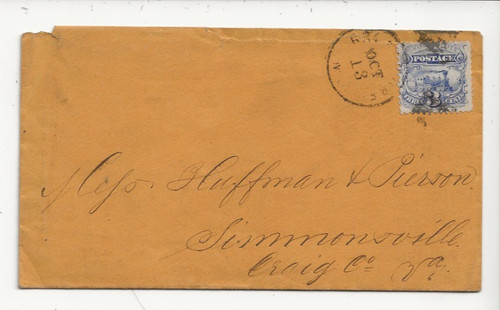 OCT
13
POSTAGE
Mess. Huffman & Pierson.
Simmonsville.
Craig Co. Va.